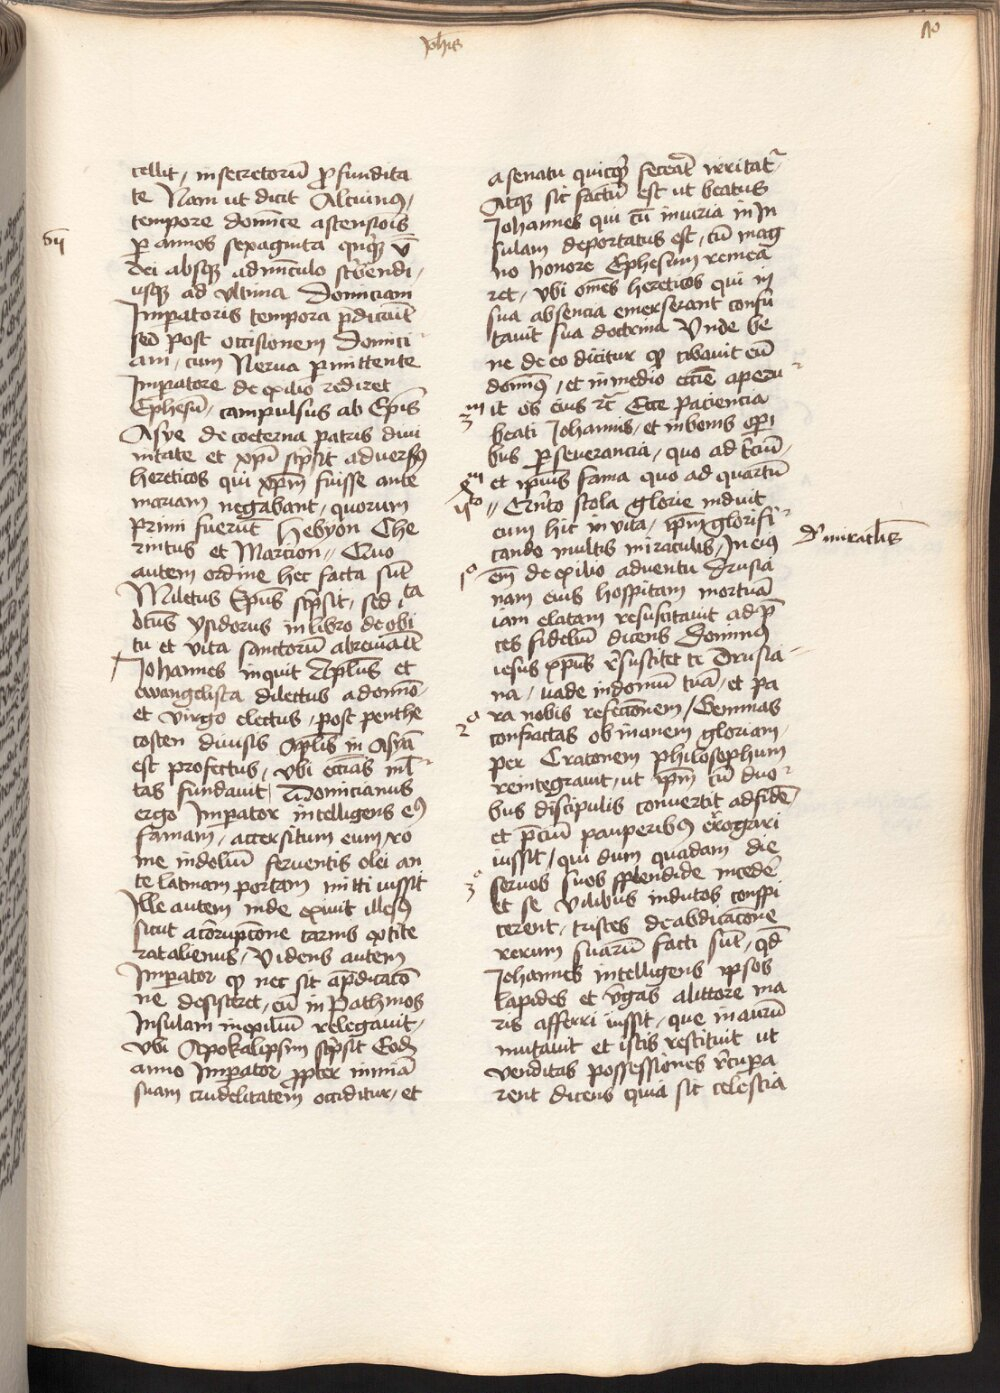 Joh̄is
cellit, in secretorū ꝓfundita
te Nam ut dicit Alcuinꝰ,
tempore domīce ascensiois
ꝑ annos sexaginta qn̄qꝫ v̄
dei absqꝫ admīculo scͥbendi,
usqꝫ ad vltima Domiciani
Imꝑatoris tempora p̄dicauit
sed post occisionem Domici
ani, cum Nerua ꝑmittente
Imꝑatore de exilio rediret
Ephesū, compulsus ab Ep̄is
Asye de coeterna patris diui
nitate et xp̄i scͥpsit aduersꝰ
hereticos qui xp̄m fuisse ante
mariam negabant, quorum
primi fuerūt Hebyon Che
rintus et Marcion,, Quo
autem ordine hec facta sūt
Miletus Ep̄us scͥpsit, sed ita
btūs ysidorus in libro de obi
tu et vita sanctorū abreuiauit
Johannes inquit Apl̄us et
ewangelista dilectus a domīo
et virgo electus, post penthe
costen diuisis Apl̄is in Asyā
est profectus, vbi ecc̄ias ml̄
tas fundauit, Domicianus
ergo Imꝑator intelligens eiꝰ
famam, accersitum eum, ro
me in doliū feruentis olei an
te latinam portam mitti iussit
Ille autem inde exiuit illesꝰ
sicut a corupcōne carnis extite
rat alienus, Videns autem
Imꝑator ꝙ nec sic a p̄dicacō
ne desisteret, eū in Pathmos
Insulam in exiliū relegauit,
vbi Apokalipsim scͥpsit Eodē
anno Imꝑator ꝓpter nimiā
suam crudelitatem occiditur, et
a senatu quicqͥd fecerat irritat᷑
Atqꝫ sic factū est ut beatus
Johannes qui cū iniuria in In
sulam deportatus est, cū mag
no honore Ephesum remea
ret, vbi om̄es hereticos qui in
sua absencia emerserant confu
tauit sua doctrina Vnde be
ne de eo dicitur ꝙ cibauit eū
domiꝰ, et in medio eccīe aperu
3m it os eius rc̄ Ecce paciencia
beati Johannis, et in bonis oꝑi
bus ꝑseuerancia, quo ad tͨciū
4m et ip̄ius fama quo ad quartū
,, Qrto stola glorie induit
eum hic in vita, ip̄m glorifi
cando multis miraculis, In eiꝰ
1o em̄ de exilio aduentu Drusia
nam eius hospitam mortuā
iam elatam resuscitauit ad p̄
ces fidelium dicens Dominꝰ
iesus xp̄us rͤsuscitet te Drusia
na, uade in domū tuā, et pa
ra nobis refectionem, Gemmas
2o confractas ob inanem gloriam,
per Cratonem philosophum
reintegrauit, ut ip̄m cū duo
bus discipulis conuertit ad fidē,
et p̄ciū pauperibꝰ erogari
iussit, qui dum quadam die
3o seruos suos splendide incedē
et se vilibus indutos conspi
cerent, tristes de abdicacōne
rerum suarū facti sūt, qd̄
Johannes intelligens ipsos
lapides et vͥgas a littore ma
ris afferri iussit, que in aurū
mutauit et istis restituit ut
venditas possessiones rͤcuꝑa
rent dicens quia sic celestia
Dͤ miraclis̄